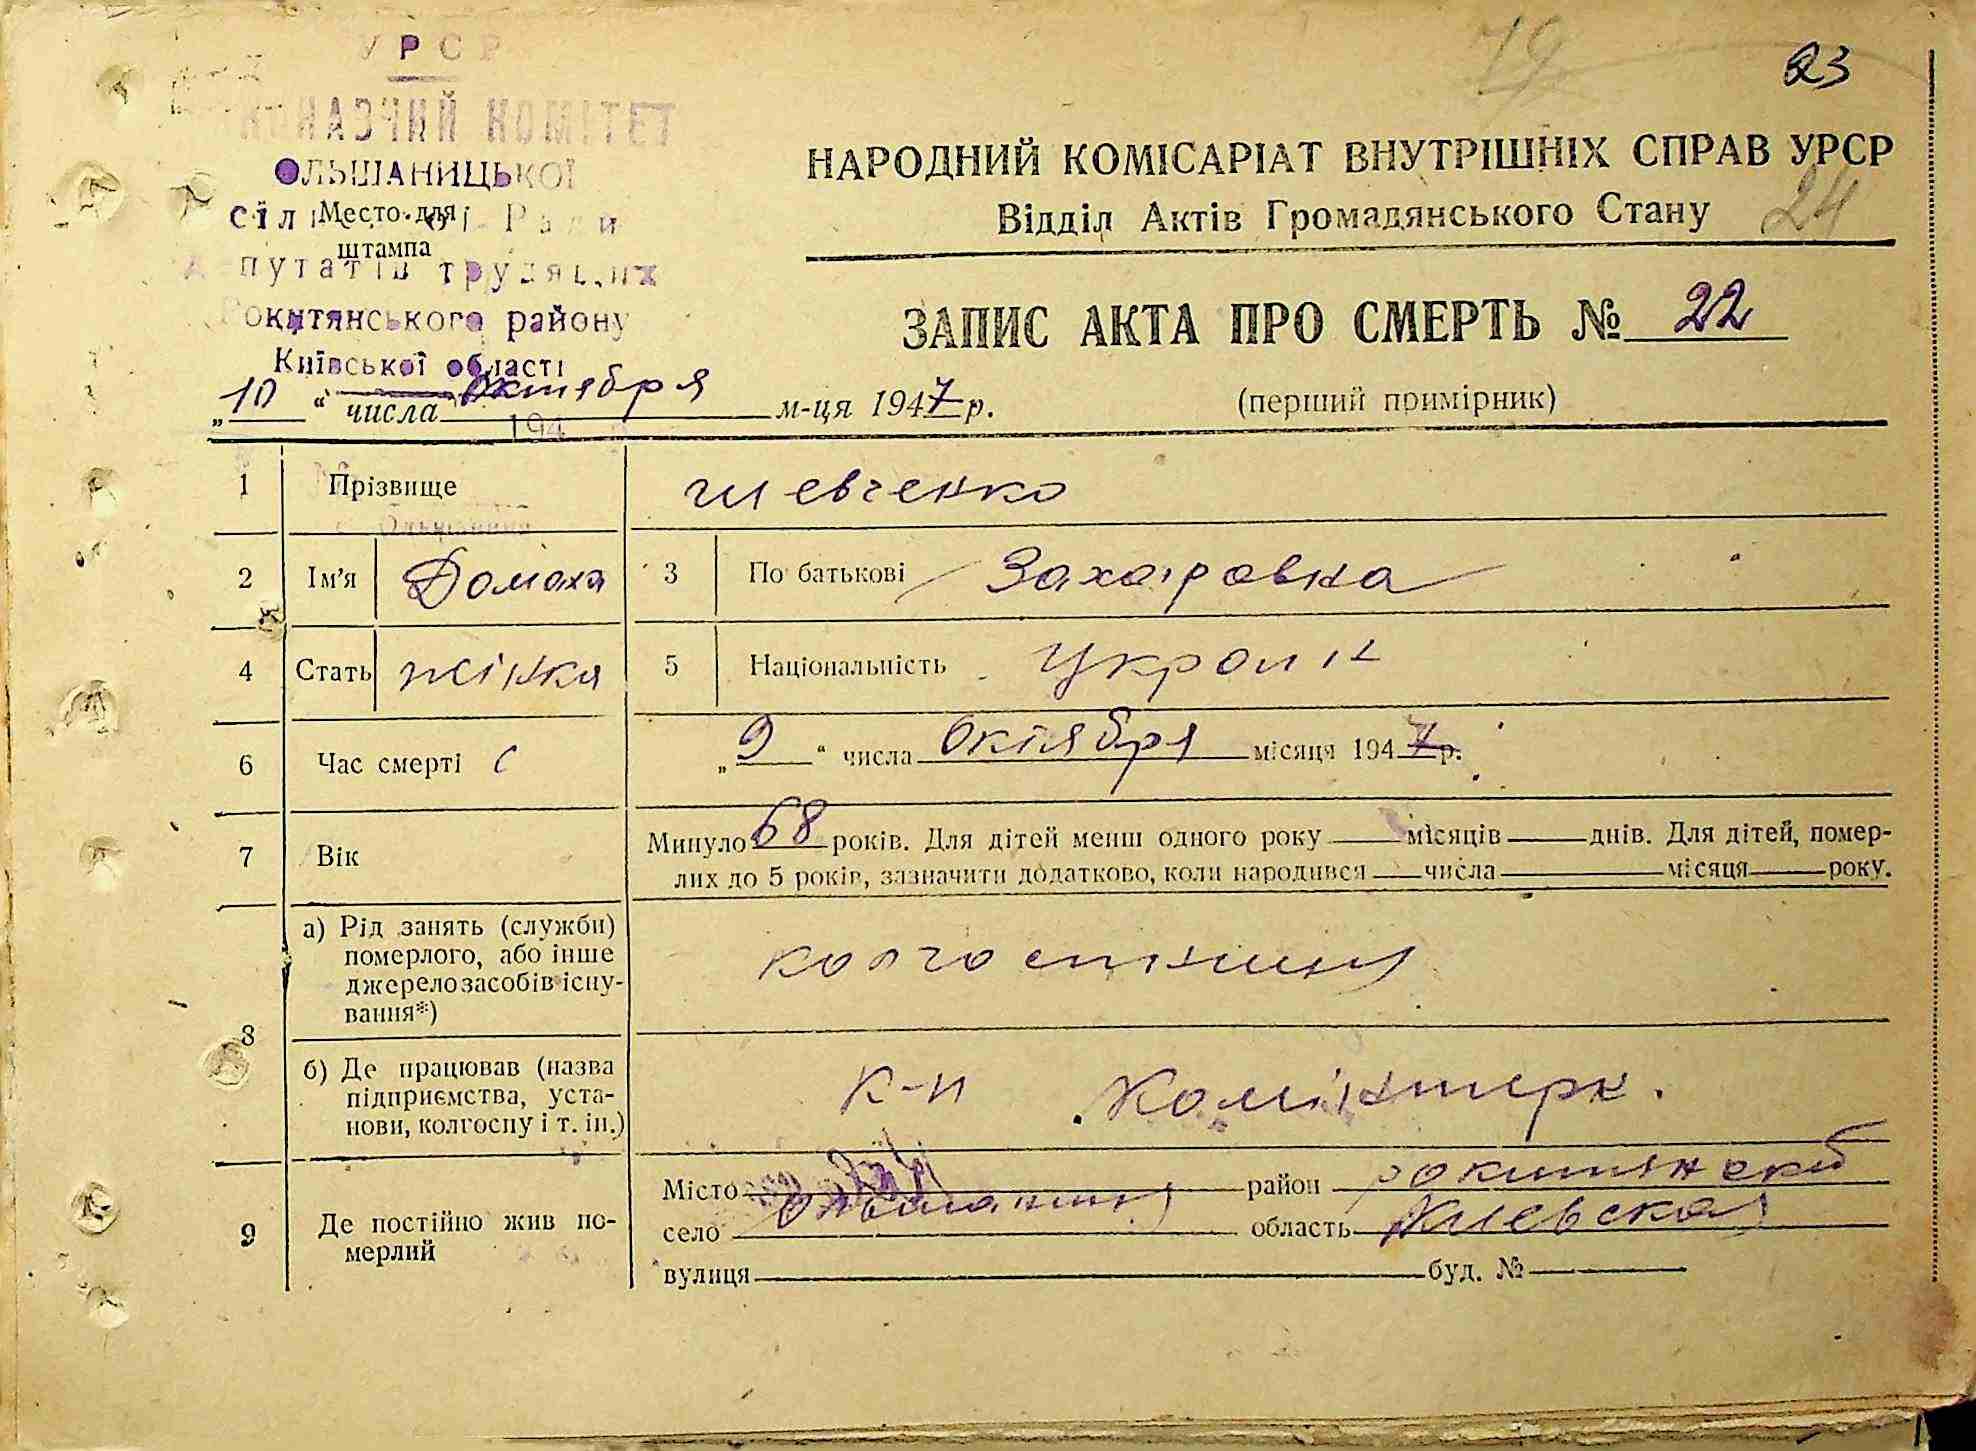 УРСР
19
23
ОЛЬШАНИЦЬКОЇ
Место для
штампа
депутатів трудящих
Рокитянського району
Київської області
НАРОДНИЙ КОМІСАРІАТ ВНУТРІШНІХ СПРАВ УРСР
Відділ Актів Громадянського Стану
24
ЗАПИС АКТА ПРО СМЕРТЬ № 22
„10“ числа октября м-ця 1947 р.
(перший примірник)
194
1 Прізвище шевченко
2 Ім'я Домаха 3 По батькові Захаровна
4 Стать жінка 5 Національність Украин
6 Час смерті „9“ числа октября місяця 1947 р.
7 Вік Минуло 68 років. Для дітей менш одного року місяців днів. Для дітей, помер-
лих до 5 років, зазначити додатково, коли народився числа місяця року.
8 а) Рід занять (служби)
померлого, або інше
джерело засобів існу-
вання*)
колгоспниця
б) Де працював (назва
підприємства, уста-
нови, колгоспу і т. ін.)
к-п Комінтерн.
9 Де постійно жив по-
мерлий
Місто район рокитянский
село Ольшаниця область Киевская
вулиця буд. №